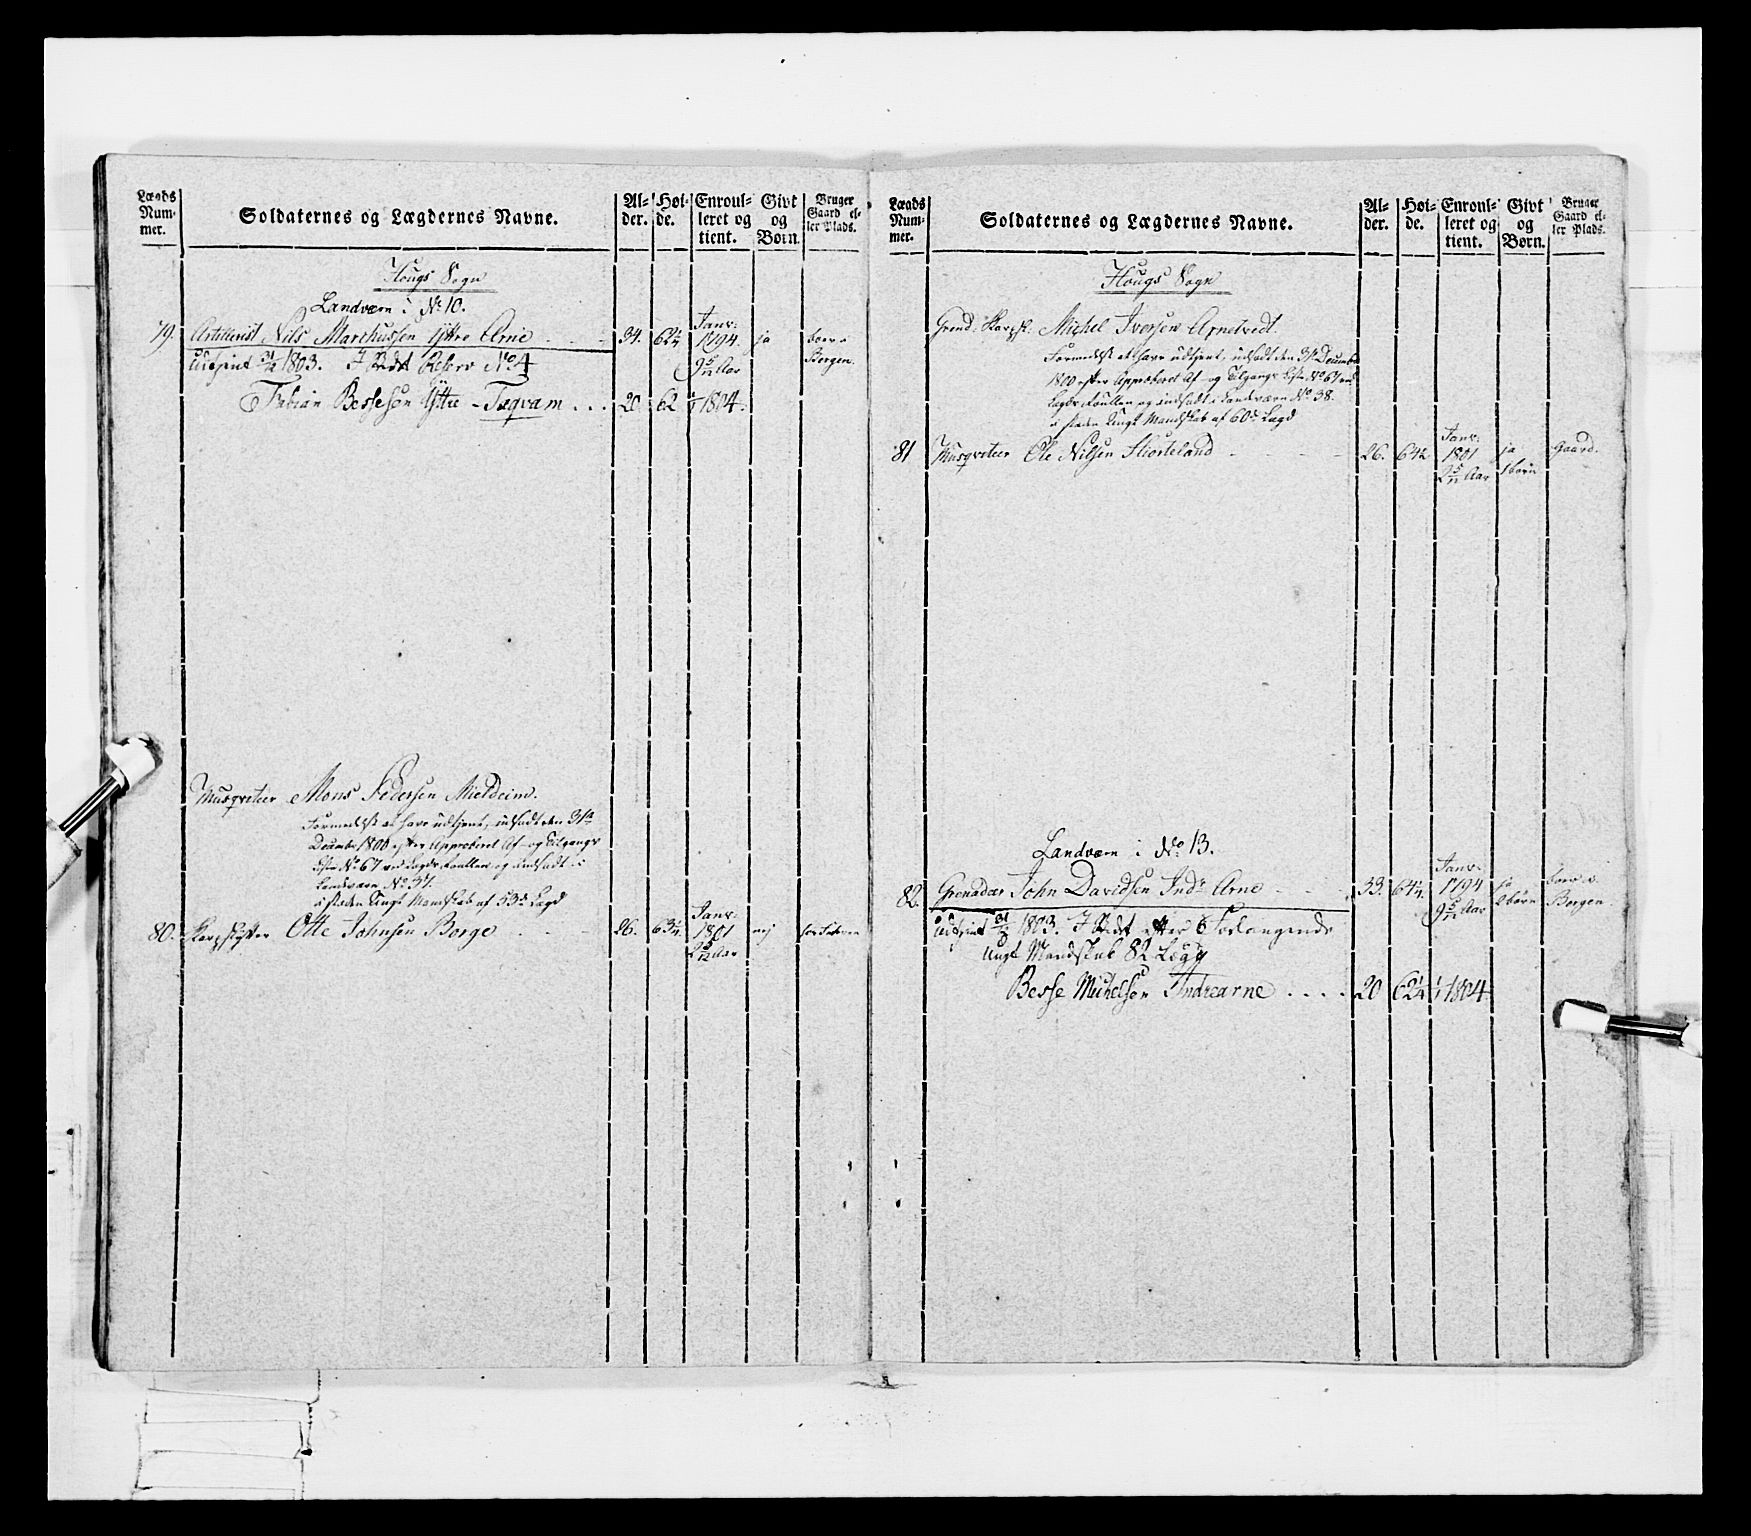 Lægds Nummer.
Soldaternes og Lægdernes Navne.
Alder.
Høide.
Enroulleret og tient.
Givt og Børn.
Bruger Gaard eller Plads.
Hougs Sogn
Landværn i No 10.
79. Artillerist Nils Marchussen Yttre Arne 34. 62 1/4 Janv: 1794. 9 5/12 Aar ja boer v Bergen.
Udtient 31/12 1803. I Stedt Reserv No 4
Fabian Bessesen Yttre-Taqvam ... 20. 62 1/1 1804.
Musqveteer Mons Pedersen Mieldeim.
Formedelst at have udtjent, udsadt den 31te
Decembr 1800 efter Approberet Af- og Tilgangs
Liste No 67 ved Lægds Roullen og indsadt i
Landværn No 37.
i steden Ungt Mandskab af 53de Lægd
80. Skarpskytter Otte Johnsen Borge 26. 63 1/4 Janv: 1801 2 5/12 Aar nej
Lægds Nummer.
Soldaternes og Lægdernes Navne.
Alder.
Høide.
Enroulleret og tient.
Givt og Børn.
Bruger Gaard eller Plads.
Hougs Sogn
Grend. Skarpsk. Michel Iversen Arnetvedt.
Formedelst at have udtjent, udsadt den 31te Decembr
1800 efter Approberet Af- og Tilgangs Liste No 67 ved
Lægds Roullen og indsadt i Landværn No 38.
i steden Ungt Mandskab af 60de Lægd
81 Musqveteer Ole Nilsen Stiorteland 26. 64 1/2 Janv: 1801 2 5/12 Aar ja 1 børn Gaard.
Landværn i No 13.
82. Grenadeer John Davidsen Indr Arne 33. 64 1/4 Janv: 1794 9 5/12 Aar ja 2 børn boer v. Bergen.
Udtjent 31/12 1803. I Stedt efter Forlangende
Ungt Mandskab 82 Lægd
Besse Michelsen Indrearne .... 20 62 1/4 1/1 1804.